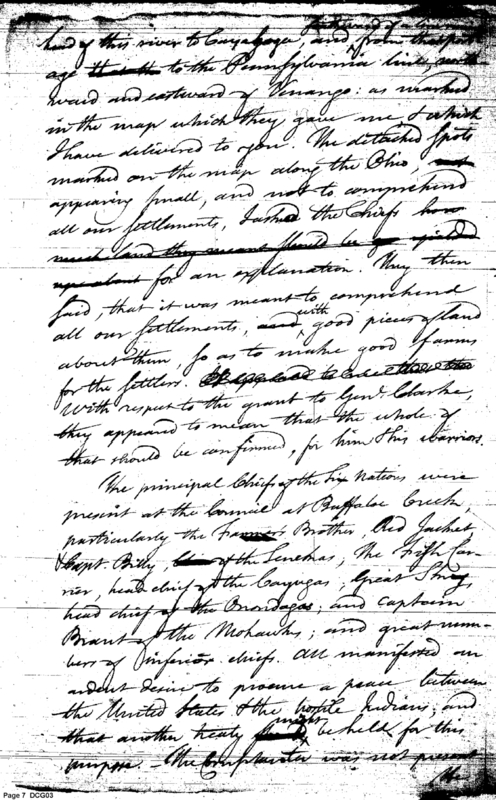 head of this river to Cayahoga, and from that port
age to the Pennsylvania line, north
ward and eastward of Venango: as marked
in the map which they gave me, & which
I have delivered to you. The detached spots
marked on the map along the Ohio,
appearing small, and not to comprehend
all our settlements, I asked the Chiefs how
much land they meant should be
for an explanation. They then
said, that it was meant to comprehend
all our settlements, and with good pieces of land
about them, so as to make good farms
for the settlers.
With respect to the grant to Genl. Clarke,
they appeared to mean that the whole of
that should be confirmed, for him & his warriors.
The principal Chiefs of the Six Nations were
present at the Council at Buffaloe Creek,
particularly the Farmer's Brother, Red Jacket
& Capt. Billy, of the Senekas; The Fish Car-
rier, head chief of the Cayugas; Great Sky
head chief of the Onondagas; and Captain
Brant of the Mohawks; and great num-
bers of inferior chiefs. All manifested an
ardent desire to procure a peace between
the United States & the hostile Indians; and
that another treaty might be held for this
purpose. The Cornplanter was not present
Page 7 DCG03